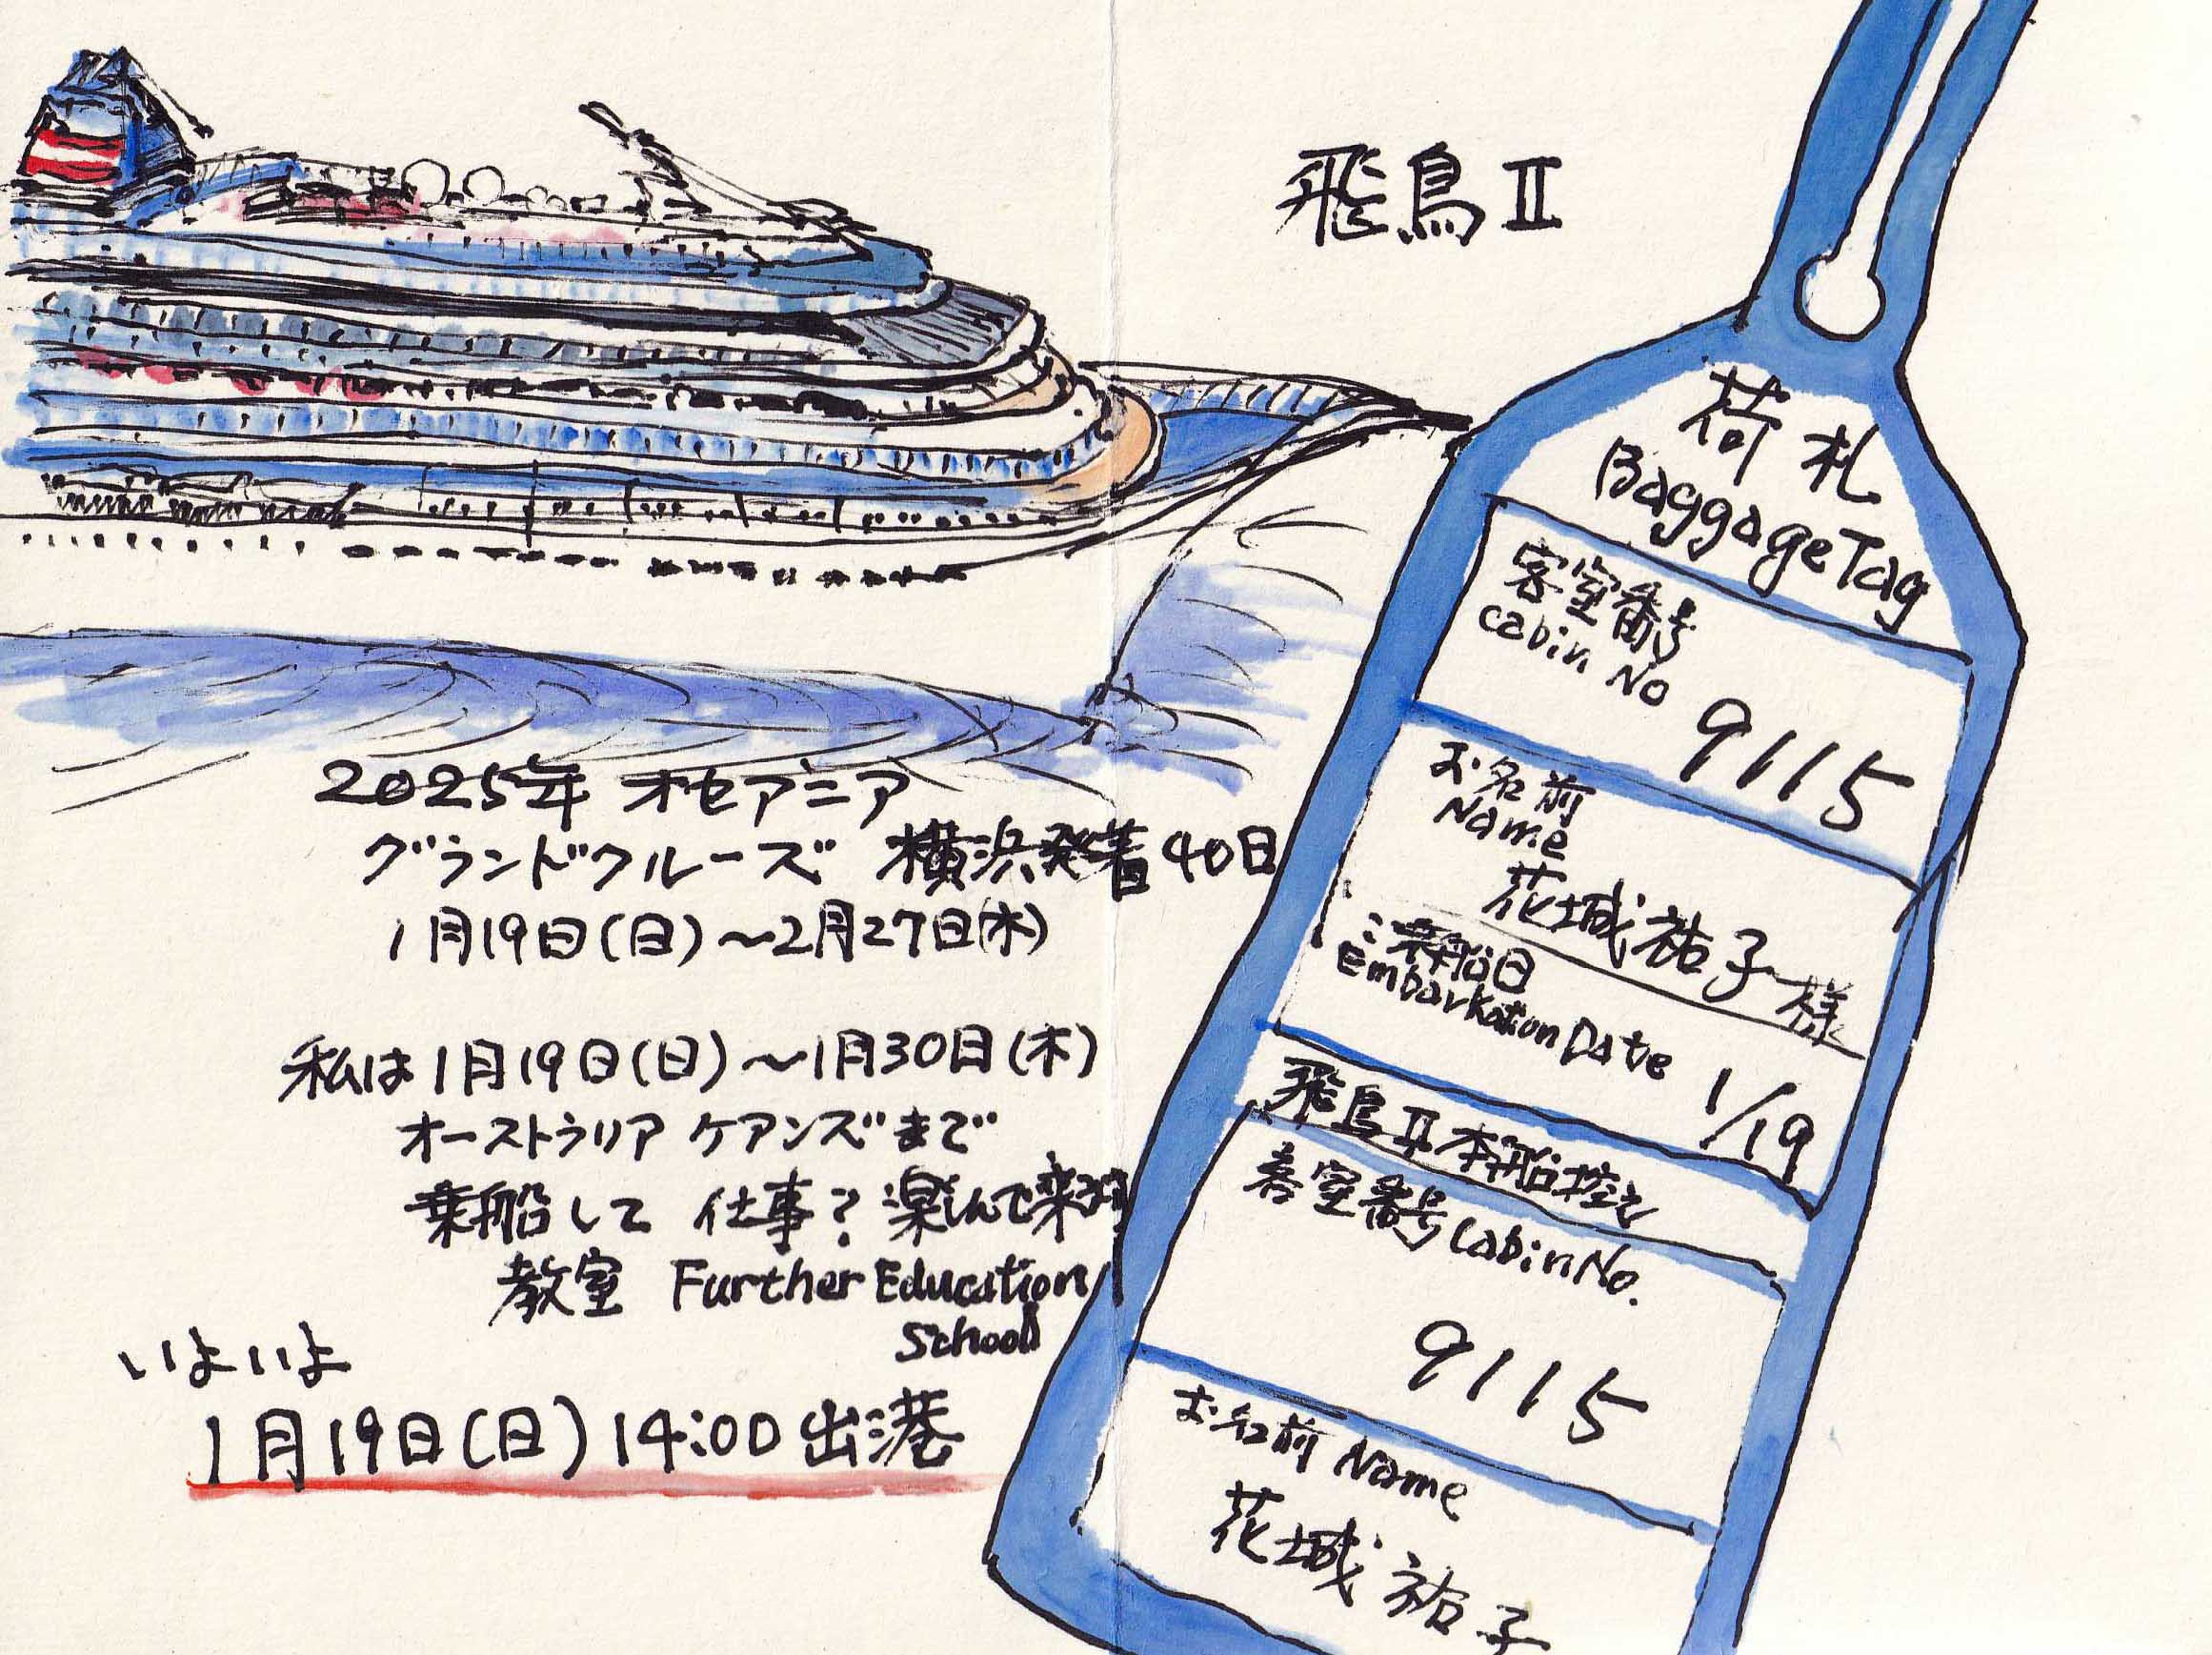 飛鳥Ⅱ
2025年 オセアニア
グランドクルーズ 横浜発着40日
1月19日(日)~2月27日(木)
私は1月19日(日)~1月30日(木)
オーストラリア ケアンズまで
乗船して 仕事?楽しんで来ます
教室 Further Education
School
いよいよ
1月19日(日)14:00出港
荷札
Baggage Tag
客室番号
Cabin No
9115
お名前
Name
花城祐子様
乗船日
Embarkation Date 1/19
飛鳥Ⅱ本船控え
客室番号 Cabin No.
9115
お名前 Name
花城祐子